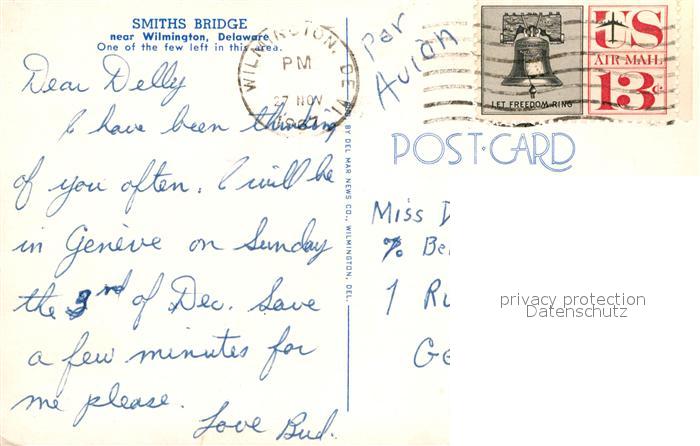 SMITHS BRIDGE
near Wilmington, Delaware
One of the few left in this area.
Dear Delly
I have been thinking
of you often. I will be
in Genève on Sunday
the 3rd of Dec. Save
a few minutes for
me please.
Love Bud.
WILMINGTON, DE
PM
27 NOV
PUB. BY DEL MAR NEWS CO., WILMINGTON, DEL.
Par
Avion
LET FREEDOM RING
US
AIR MAIL
13c
POST-CARD
Miss
%
1
privacy protection
Datenschutz